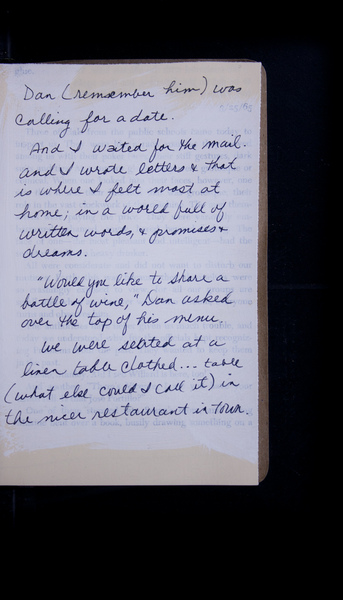 Dan (remsember him) was
calling for a date.
And I waited for the mail.
and I wrote letters & that
is where I felt most at
home; in a world full of
written words, & promises &
dreams.
"Would you like to share a
bottle of wine," Dan asked
over the top of his menu.
We were seated at a
linen table clothed... table
(what else could I call it) in
the nicer restaurant in town.